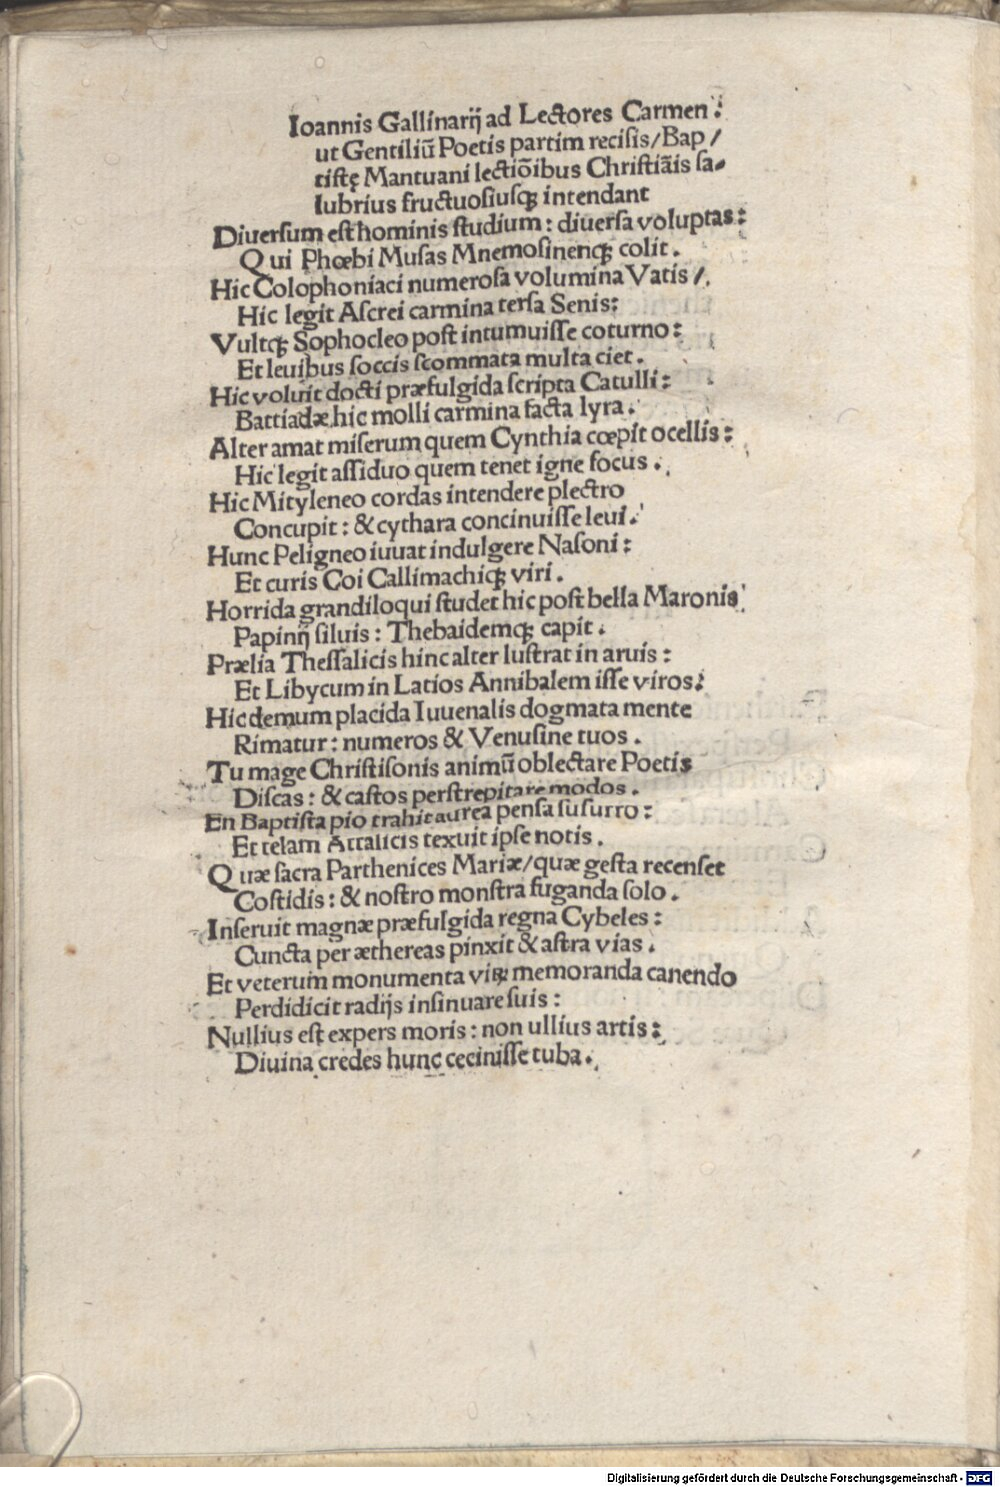 Ioannis Gallinarij ad Lectores Carmen:
ut Gentiliū Poetis partim reciſis/Bap/
tiſtę Mantuani lectiōibus Chriſtiāis ſa-
lubrius fructuoſiuſqꝫ intendant
Diuerſum eſt hominis ſtudium: diuerſa voluptas:
Qui Phœbi Muſas Mnemoſinenqꝫ colit.
Hic Colophoniaci numeroſa volumina Vatis/
Hic legit Aſcrei carmina terſa Senis:
Vultqꝫ Sophocleo poſt intumuiſſe coturno:
Et leuibus ſoccis ſcommata multa ciet.
Hic voluit docti præfulgida ſcripta Catulli:
Battiadæ hic molli carmina facta lyra.
Alter amat miſerum quem Cynthia cœpit ocellis:
Hic legit aſſiduo quem tenet igne focus.
Hic Mityleneo cordas intendere plectro
Concupit: & cythara concinuiſſe leui.
Hunc Peligneo iuuat indulgere Naſoni:
Et curis Coi Callimachiqꝫ viri.
Horrida grandiloqui ſtudet hic poſt bella Maronis
Papinij ſiluis: Thebaidemqꝫ capit.
Prælia Theſſalicis hinc alter luſtrat in aruis:
Et Libycum in Latios Annibalem iſſe viros:
Hic demum placida Iuuenalis dogmata mente
Rimatur: numeros & Venuſine tuos.
Tu mage Chriſtiſonis animū oblectare Poetis
Diſcas: & caſtos perſtrepitare modos.
En Baptiſta pio trahit aurea penſa ſuſurro:
Et telam Attalicis texuit ipſe notis.
Quæ ſacra Parthenices Mariæ/quæ geſta recenſet
Coſtidis: & noſtro monſtra fuganda ſolo.
Inſeruit magnæ præfulgida regna Cybeles:
Cuncta per æthereas pinxit & aſtra vias.
Et veterum monumenta virꝫ memoranda canendo
Perdidicit radijs inſinuare ſuis:
Nullius eſt expers moris: non ullius artis:
Diuina credes hunc ceciniſſe tuba.
Digitalisierung gefördert durch die Deutsche Forschungsgemeinschaft - DFG